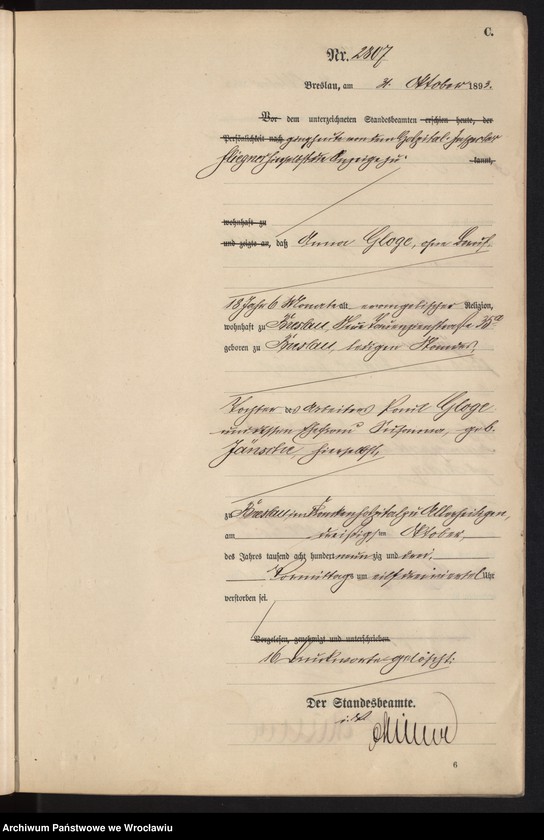 C.
Nr. 2807
Breslau, am 31. Oktober 1893.
Vor dem unterzeichneten Standesbeamten erschien heute, der
Persönlichkeit nach ging heute von dem Hospital-Inspector
Fliegner hierselbst die Anzeige zu kannt,
wohnhaft zu
und zeigte an, daß Anna Gloge, ohne Beruf,
18 Jahr 6 Monate alt evangelischer Religion,
wohnhaft zu Breslau, Neue Tauenzienstraße 35a
geboren zu Breslau, ledigen Standes,
Tochter des Arbeiters Paul Gloge
und dessen Ehefrau Susanna, geb.
Jänschke, hierselbst,
zu Breslau im Krankenhospital zu Allerheiligen,
am dreißigsten Oktober,
des Jahres tausend acht hundert neunzig und drei,
Vormittags um elf dreiviertel Uhr
verstorben sei.
Vorgelesen, genehmigt und unterschrieben
16 Druckworte gelöscht.
Der Standesbeamte.
i. V.
6
Archiwum Państwowe we Wrocławiu